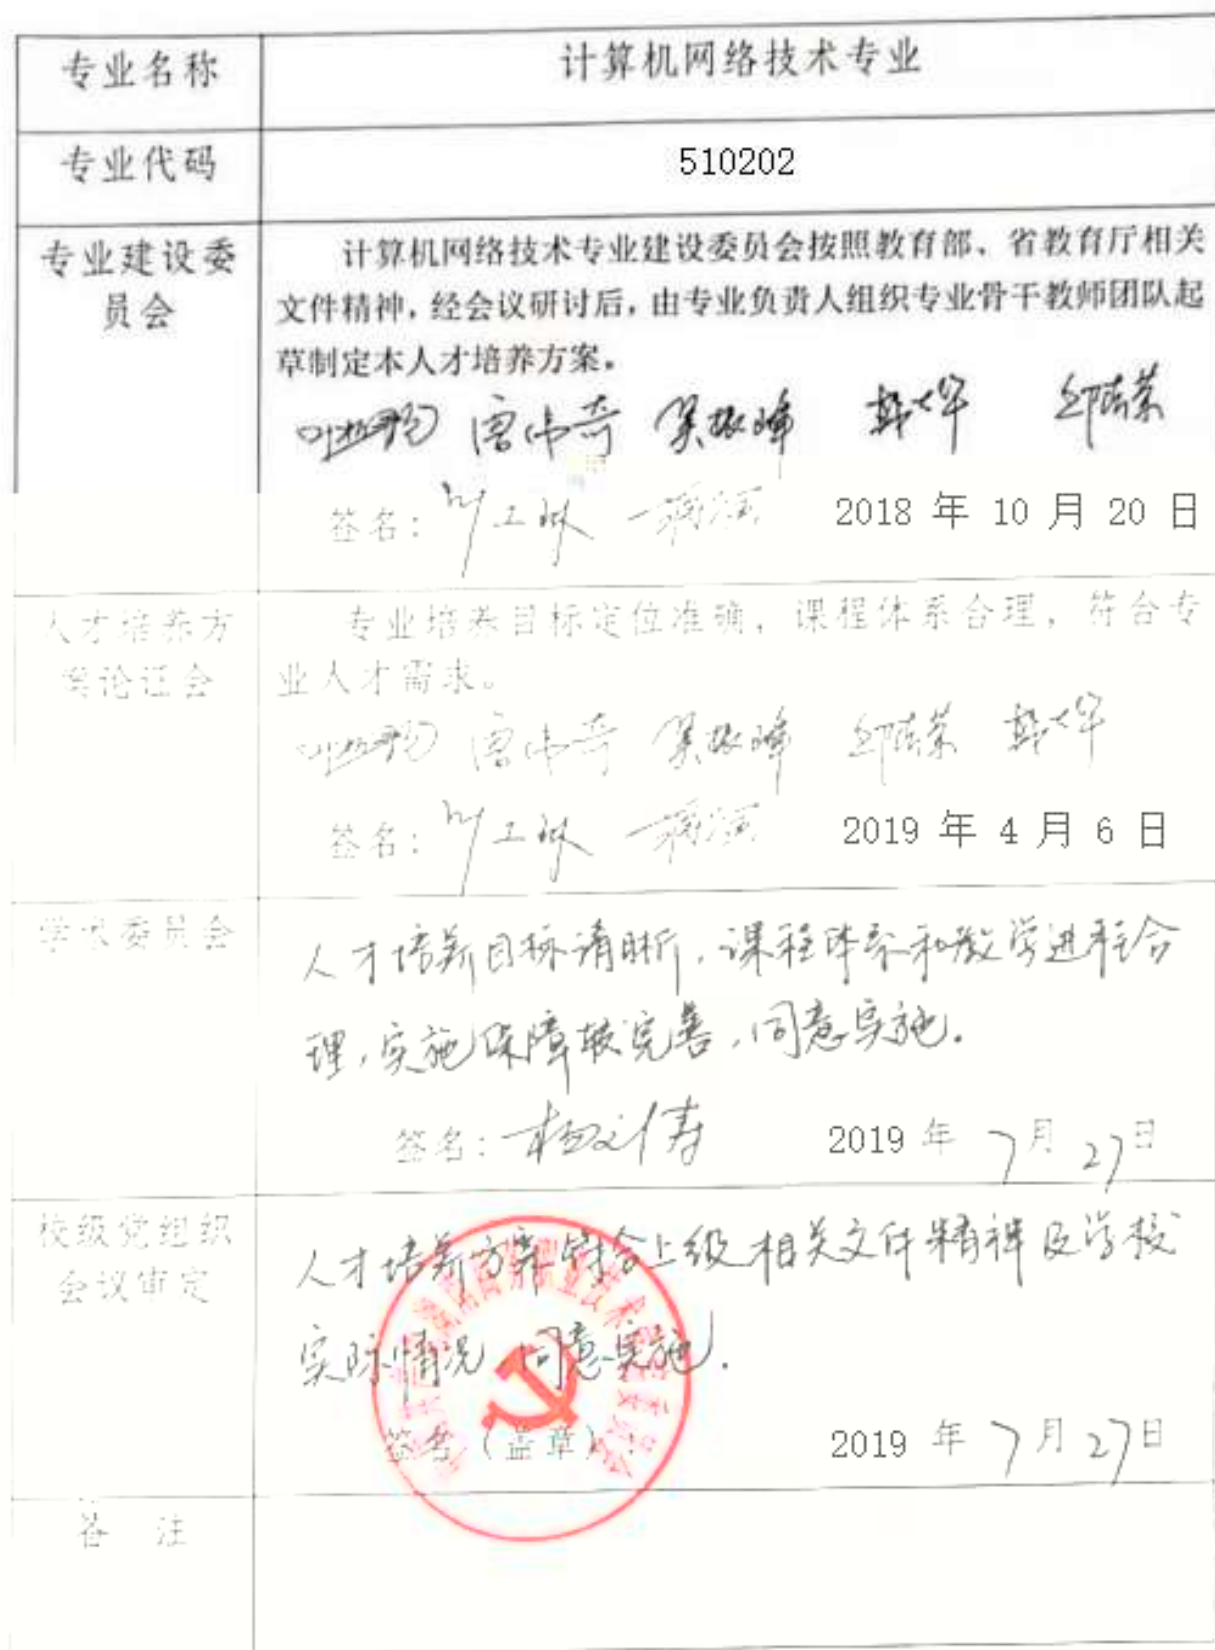 专业名称
计算机网络技术专业
专业代码
510202
专业建设委
员会
计算机网络技术专业建设委员会按照教育部、省教育厅相关
文件精神，经会议研讨后，由专业负责人组织专业骨干教师团队起
草制定本人才培养方案。
唐伟奇 吴振峰 邱志荣
签名： 2018 年 10 月 20 日
人才培养方
案论证会
专业培养目标定位准确，课程体系合理，符合专
业人才需求。
唐伟奇 吴振峰 邱志荣
签名： 2019 年 4 月 6 日
学术委员会
人才培养目标清晰，课程体系和教学进程合
理，实施保障较完善，同意实施.
签名： 2019 年 7月 27日
校级党组织
会议审定
人才培养方案符合上级相关文件精神及学校
实际情况，同意实施.
签名（盖章）： 2019 年 7月 27日
备 注